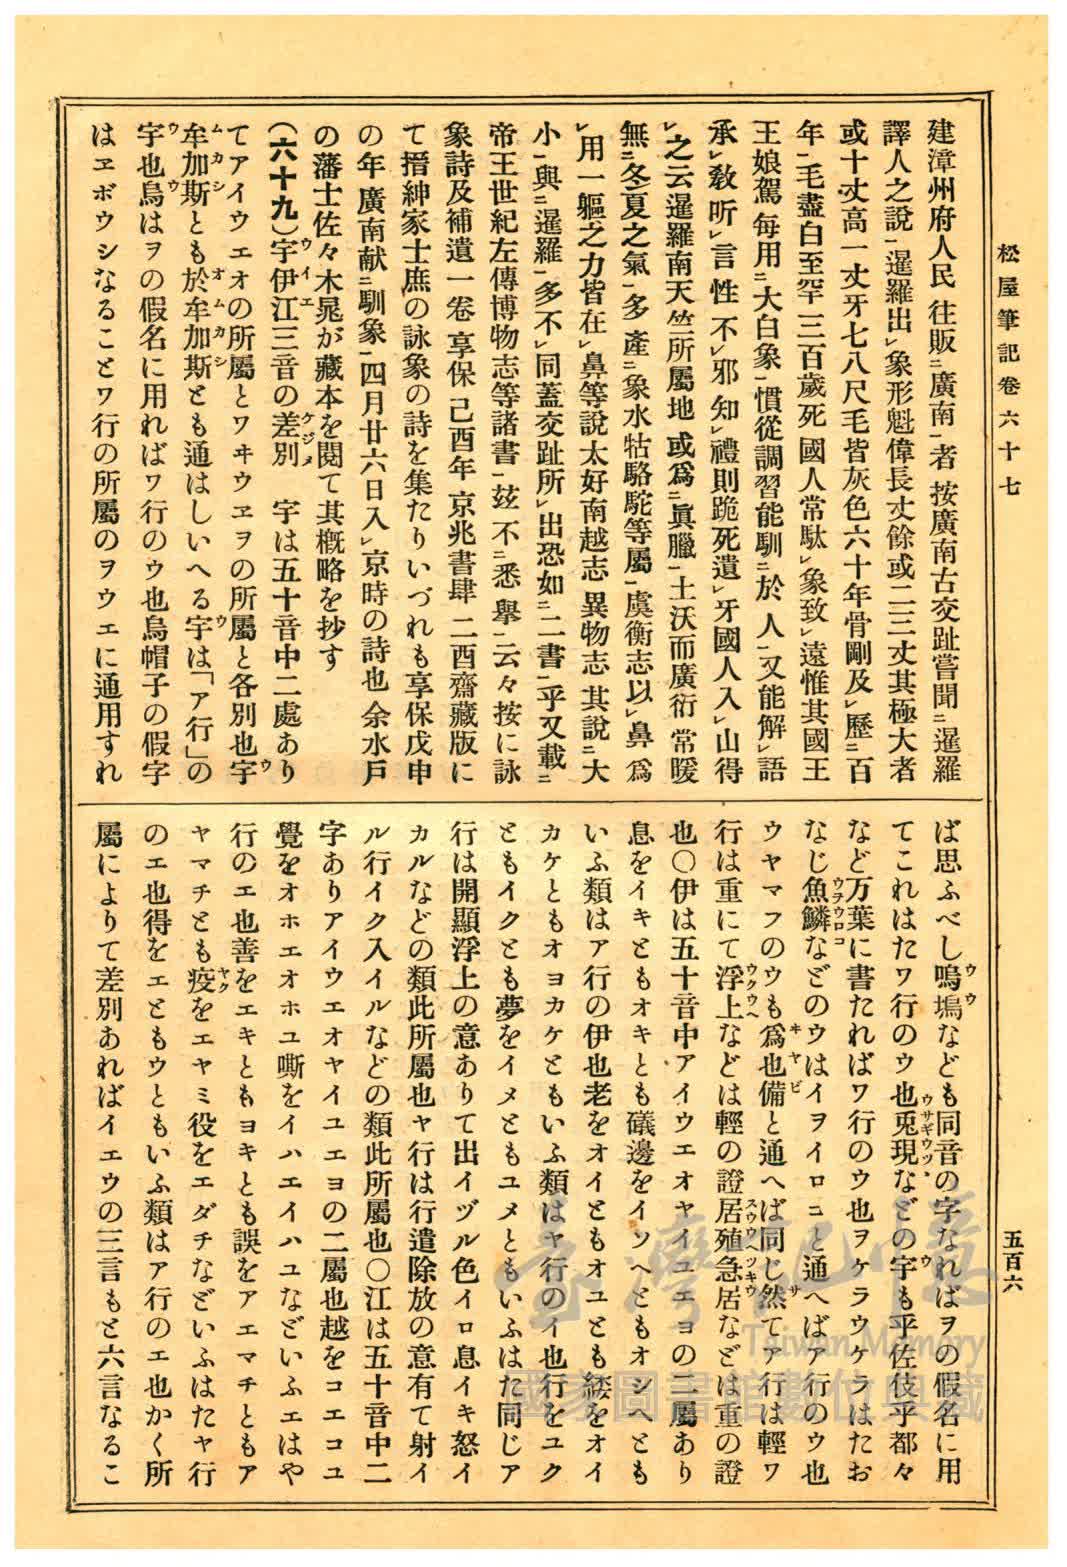 松屋筆記卷六十七
五百六
建漳州府人民往販ニ廣南一者按廣南古交趾嘗聞ニ暹羅
譯人之說一暹羅出レ象形魁偉長丈餘或二三丈其極大者
或十丈高一丈牙七八尺毛皆灰色六十年骨剛及レ歷ニ百
年一毛盡白至罕三百歲死國人常馱レ象致レ遠惟其國王
王娘駕每用ニ大白象一慣從調習能馴ニ於人一又能解レ語
承レ敎听レ言性不レ邪知レ禮則跪死遺レ牙國人入レ山得
レ之云暹羅南天竺所屬地或爲ニ眞臘一土沃而廣衍常暖
無ニ冬夏之氣一多產ニ象水牯駱駝等屬一虞衡志以レ鼻爲
レ用一軀之力皆在レ鼻等說太好南越志異物志其說ニ大
小一與ニ暹羅一多不レ同蓋交趾所レ出恐如ニ二書一乎又載ニ
帝王世紀左傳博物志等諸書一玆不ニ悉擧一云々按に詠
象詩及補遺一卷享保己酉年京兆書肆二酉齋藏版に
て搢紳家士庶の詠象の詩を集たりいづれも享保戊申
の年廣南献ニ馴象一四月廿六日入レ京時の詩也余水戶
の藩士佐々木晁が藏本を閱て其槪略を抄す
(六十九)宇伊江三音の差別　宇は五十音中二處あり
てアイウエオの所屬とワヰウヱヲの所屬と各別也宇
牟加斯とも於牟加斯とも通はしいへる宇は「ア行」の
宇也烏はヲの假名に用ればワ行のウ也烏帽子の假字
はヱボウシなることワ行の所屬のヲウエに通用すれ
ば思ふべし嗚塢なども同音の字なればヲの假名に用
てこれはたワ行のウ也兎現などの宇も乎佐伎乎都々
など万葉に書たればワ行のウ也ヲケラウケラはたお
なじ魚鱗などのウはイヲイロコと通へばア行のウ也
ウヤマフのウも爲也備と通へば同じ然てア行は輕ワ
行は重にて浮上などは輕の證居殖急居などは重の證
也〇伊は五十音中アイウエオヤイユエヨの二屬あり
息をイキともオキとも礒邊をイソヘともオシヘとも
いふ類はア行の伊也老をオイともオユとも緌をオイ
カケともオヨカケともいふ類はヤ行のイ也行をユク
ともイクとも夢をイメともユメともいふはた同じア
行は開顯浮上の意ありて出イヅル色イロ息イキ怒イ
カルなどの類此所屬也ヤ行は行遣除放の意有て射イ
ル行イク入イルなどの類此所屬也〇江は五十音中二
字ありアイウエオヤイユエヨの二屬也越をコエコユ
覺をオホエオホユ嘶をイハエイハユなどいふエはや
行のエ也善をエキともヨキとも誤をアエマチともア
ヤマチとも疫をエヤミ役をエダチなどいふはたヤ行
のエ也得をエともウともいふ類はア行のエ也かく所
屬によりて差別あればイエウの三言もと六言なるこ
臺灣記憶
Taiwan Memory
國家圖書館數位典藏